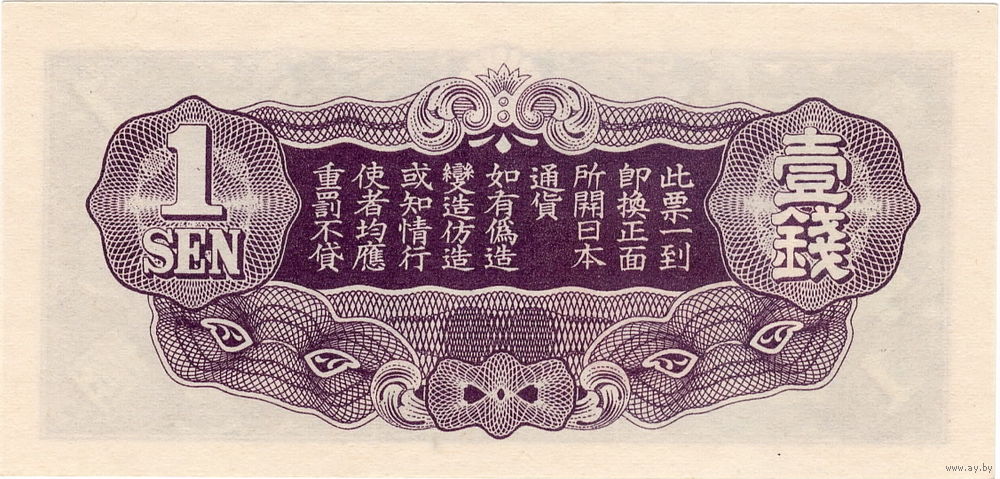 1
SEN
壹錢
此票一到
即換正面
所開日本
通貨
如有僞造
變造仿造
或知情行
使者均應
重罰不貸
www.ay.by